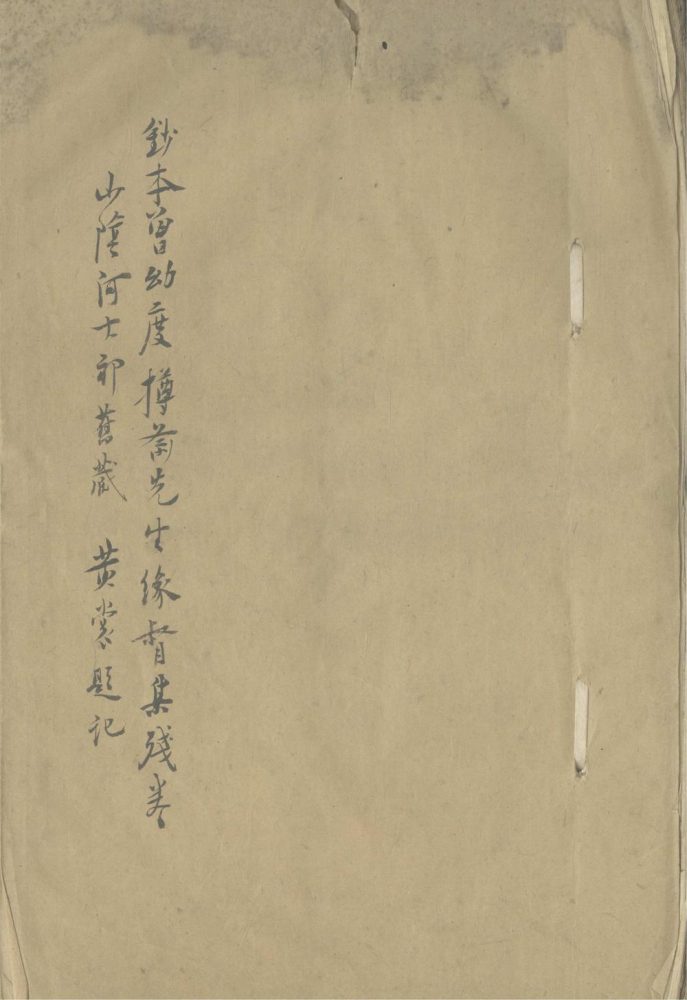 鈔本曾幼度撙齋先生緣督集殘卷
山陰祁氏舊藏　黄裳題記